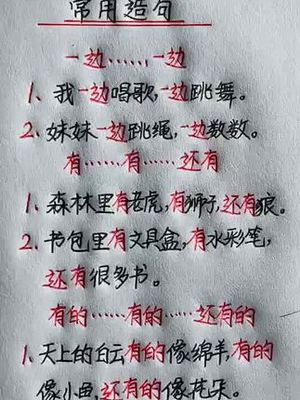 常用造句
一边……一边
1、我一边唱歌，一边跳舞。
2、妹妹一边跳绳，一边数数。
有……有……还有
1、森林里有老虎，有狮子，还有狼。
2、书包里有文具盒，有水彩笔，
还有很多书。
有的……有的……还有的
1、天上的白云有的像绵羊，有的
像小鱼，还有的像花朵。